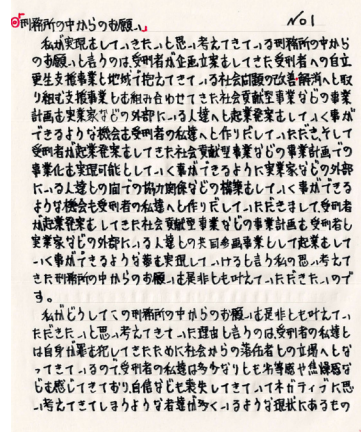 刑務所の中からのお願い No1
私が実現をしていきたいと思い考えてきている刑務所の中から
のお願いと言うのは、受刑者が企画立案をしてきた受刑者への自立
更生支援事業と地域で抱えてきている社会問題の改善・解消へと取
り組む支援事業とを組み合わせてきた社会貢献型事業などの事業
計画を実業家などの外部にいる人達へと起業発案をしていく事が
できるような機会を受刑者の私達へと作りだしていただき、そして
受刑者が起業発案をしてきた社会貢献型事業などの事業計画での
事業化を実現可能としていく事ができるように実業家などの外部
にいる人達との間での協力関係などの構築をしていく事ができる
ような機会を受刑者の私達へと作りだしていただきまして、受刑者
が起業発案をしてきた社会貢献型事業などの事業計画を受刑者と
実業家などの外部にいる人達との共同参画事業として起業をして
いく事ができるような夢を実現していけると言う私の思い考えて
きた刑務所の中からのお願いを是非とも叶えていただきたいので
す。
私がどうしてこの刑務所の中からのお願いを是非とも叶えてい
ただきたいと思い考えてきていた理由と言うのは、受刑者の私達と
は自身が罪を犯してきたために社会からの落伍者との立場へとな
ってきているので、受刑者の私達は多少なりとも劣等感や焦燥感な
どを感じてきており、自信なども喪失してきていてネガティブに思
い考えてきてしまうような者達が多くいるような現状にあるもの